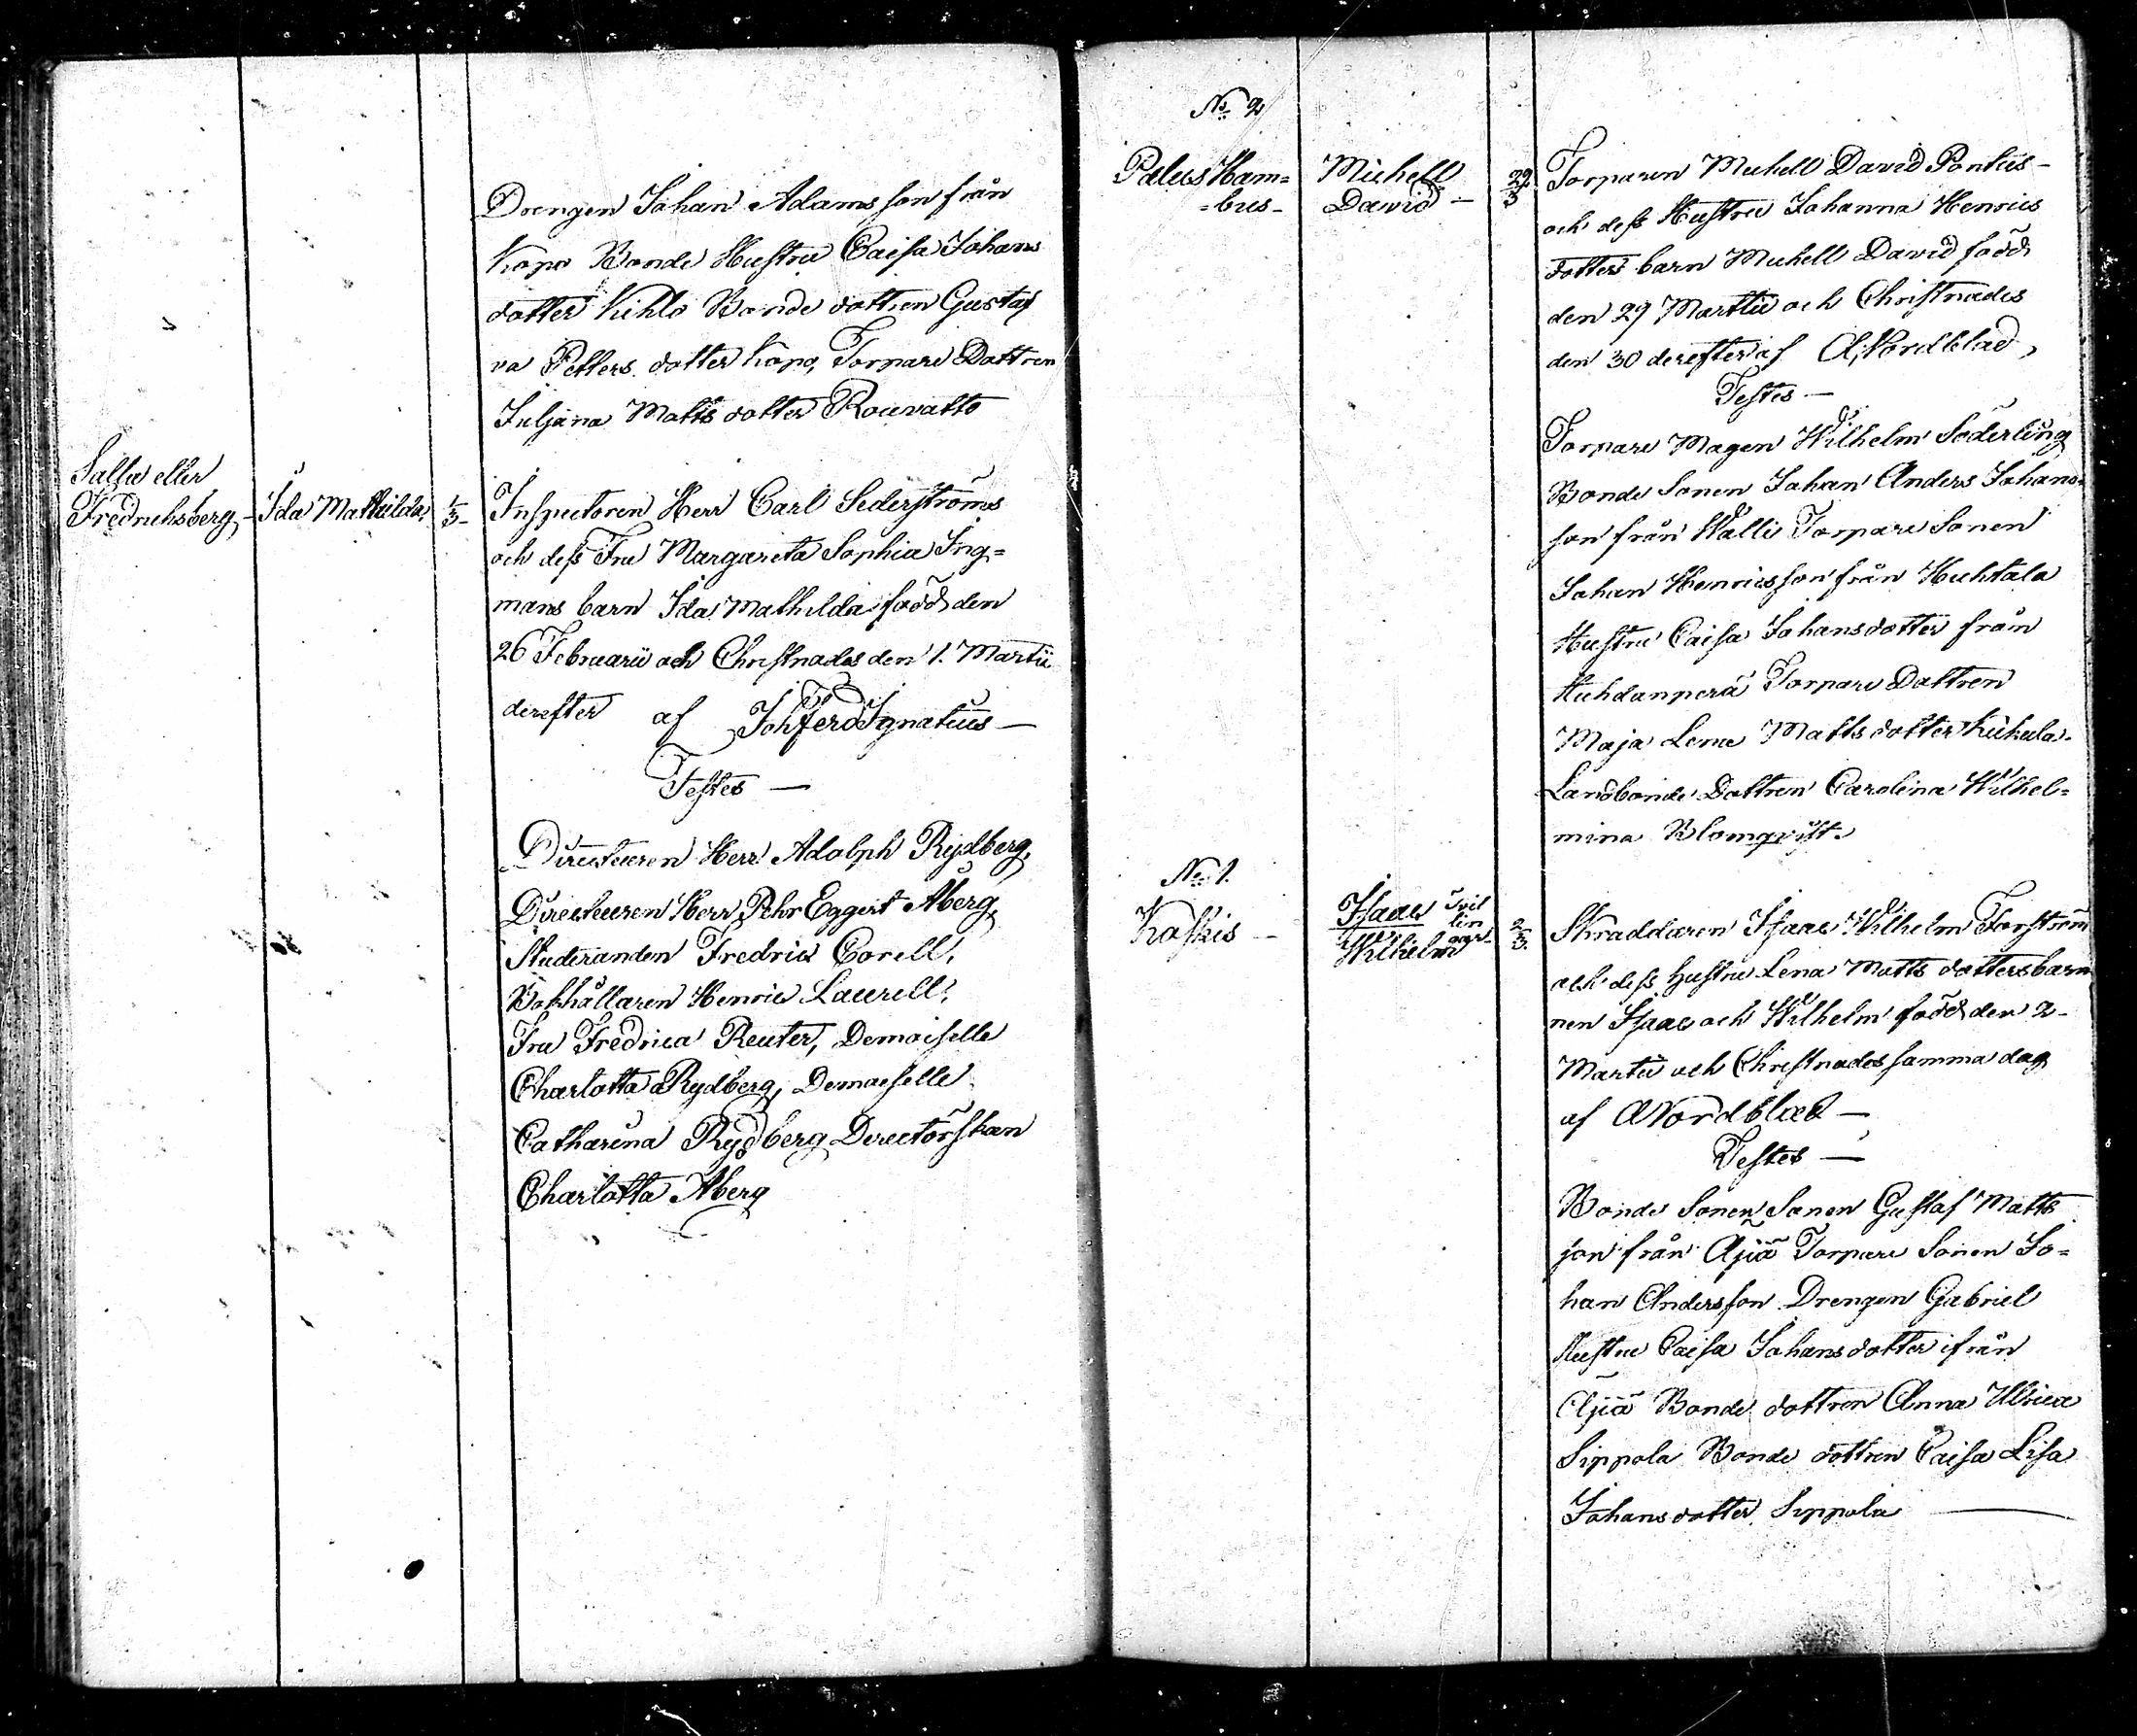 Drengen Johan Adamsson från
Kopo Bonde Hustru Caisa Johans
dotter Kihlo Bonde dottren Gustaf
va Petters dotter Kopo, Torpare Dottren
Juljana Matts dotter Rouvatto
Salla eller
Fredrichsberg - Ida Mathilda, 1/3 -
Inspectoren Herr Carl Sederströms
och dess Fru Margareta Sophia Ing=
mans barn Ida Mathilda född den
26 Februarii och Christnades den 1. Martii
derefter af Joh Ferd Ignatius —
Testes —
Directeuren Herr Adolph Rydberg,
Directeuren Herr Pehr Eggert Åberg,
Studeranden Fredric Corell,
Bokhållaren Henric Laurell,
Fru Fredrica Reuter, Demoiselle
Charlotta Rydberg, Demoiselle
Catharina Rydberg Directörskan
Charlotta Åberg
No 2
Palus Ham=
=bus -
Michell
David —
29/3
Torparen Michell David Pontus -
och dess Hustru Johanna Henrics
dotters barn Michell David född
den 29 Martii och Christnades
den 30 derefter af A Nordblad,
Testes —
Torpare Magen Wilhelm Söderling
Bonde Sonen Johan Anders Johans
son från Walli Torpare Sonen
Johan Henricsson från Huhtala
Hustru Caisa Johansdotter från
Huhdanperä Torpare Dottren
Maja Lena Matts dotter
Landbonde Dottren Carolina Wilhel=
mina Blomqvist.
No 1.
Koskis -
Isaac
Wilhelm
Tvil
lin
gar -
2/3.
Skraddaren Isaac Wilhelm Forström
och dess Hustru Lena Matts dotters barn
nen Isaac och Wilhelm född den 2 -
Martii och Christnades samma dag
af A Nordblad —
Testes —
Bonde Sonen Sonen Gustaf Matts
son från Äjiä Torpare Sonen Jo=
han Andersson Drengen Gabriel
Hustru Caisa Johansdotter ifrån
Äjiä Bonde dottren Anna Ulrica
Sippola Bonde dottren Caisa Lisa
Johansdotter Sippola —